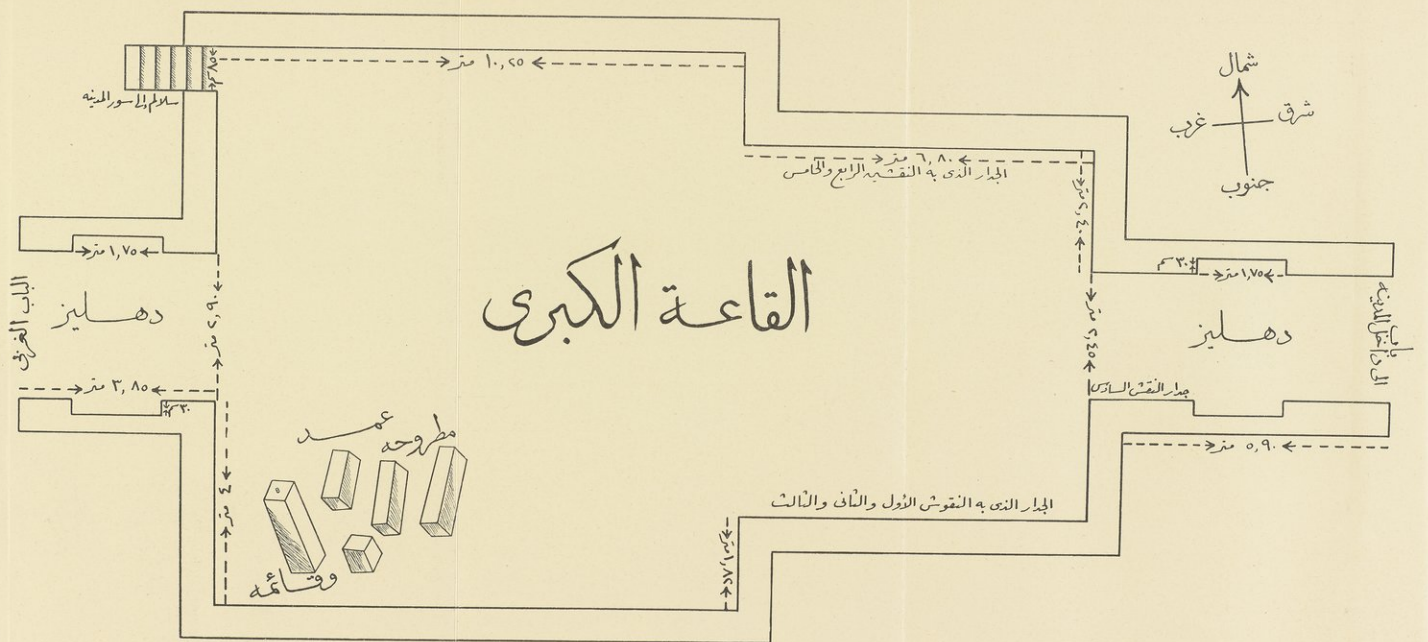 ١٠,٢٥ متر
٨٥ سم
سلالم إلى سور المدينه
شمال
شرق
غرب
جنوب
٦,٨٠ متر
الجدار الذى به النقشين الرابع والخامس
٢,٤٠ متر
١,٧٥ متر
٣٠ سم
١,٧٥ متر
القاعة الكبرى
الباب الغربى
دهليز
٢,٩٠ متر
٢,٤٥ متر
دهليز
باب
الى داخل المدينه
٣,٨٥ متر
٣٠ سم
جدار النقش السادس
٥,٩٠ متر
عمد
مطروحه
وقائمه
٤ متر
الجدار الذى به النقوش الأول والثانى والثالث
١,٨٢ متر